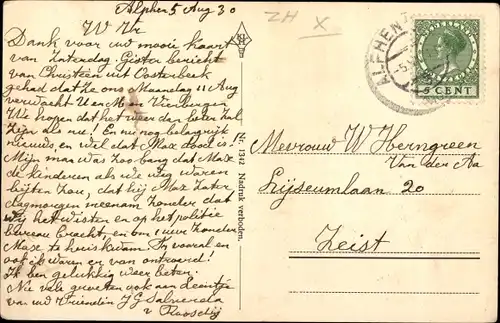 Alphen 5 Aug 30
W Vr
Dank voor uw mooi kaart
van Zaterdag Gister bericht
van Christien uit Oosterbeek
gehad dat ze ons Maandag 11 Aug
verwacht U en M en
We hopen dat het weer dan beter zal
zijn als nu! En nu nog belangrijk
nieuws, en wel dat Max dood is!
Mijn man was zoo bang dat Max
de kinderen als we weg waren
bijten zou, dat hij Max Zater
dagmorgen meenam zonder dat
wij het wisten en op het politie
bureau bracht, en om 1 uur zonder
Max te huis kwam. In vooral en
ook ik waren er van ontdaan!
Ik ben gelukkig weer beter.
Nu vele groeten ook aan
van uw vrienden J G
v
ZH X
No. 1342 Nadruk verboden.
ALPHEN
NEDERLAND
5 CENT
Mevrouw W Herngreen
Van der Aa
Lyseumlaan 20
Zeist